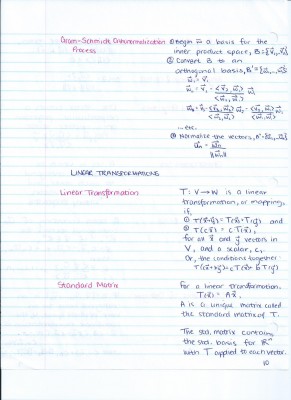 Gram-Schmidt Orthonormalization Process
① Begin w a basis for the
inner product space, B={v⃗₁,...,v⃗ₙ}
② Convert B to an
orthogonal basis, B'={w⃗₁,...,w⃗ₙ}
w⃗₁ = v⃗₁
w⃗₂ = v⃗₂ - <v⃗₂, w⃗₁>/<w⃗₁, w⃗₁> w⃗₁
... etc.
③ Normalize the vectors,
LINEAR TRANSFORMATIONS
Linear Transformation
T: V→W is a linear
transformation, or mapping,
if,
① T(x⃗+y⃗) = T(x⃗)+T(y⃗) and
② T(cx⃗) = cT(x⃗),
for all x⃗ and y⃗ vectors in
V, and a scalar, c,
Or, the conditions together:
Standard Matrix
For a linear transformation.
T(x⃗) = Ax⃗,
A is a unique matrix called
the standard matrix of T.
The std. matrix contains
the std. basis for ℝⁿ
with T applied to each vector.
10